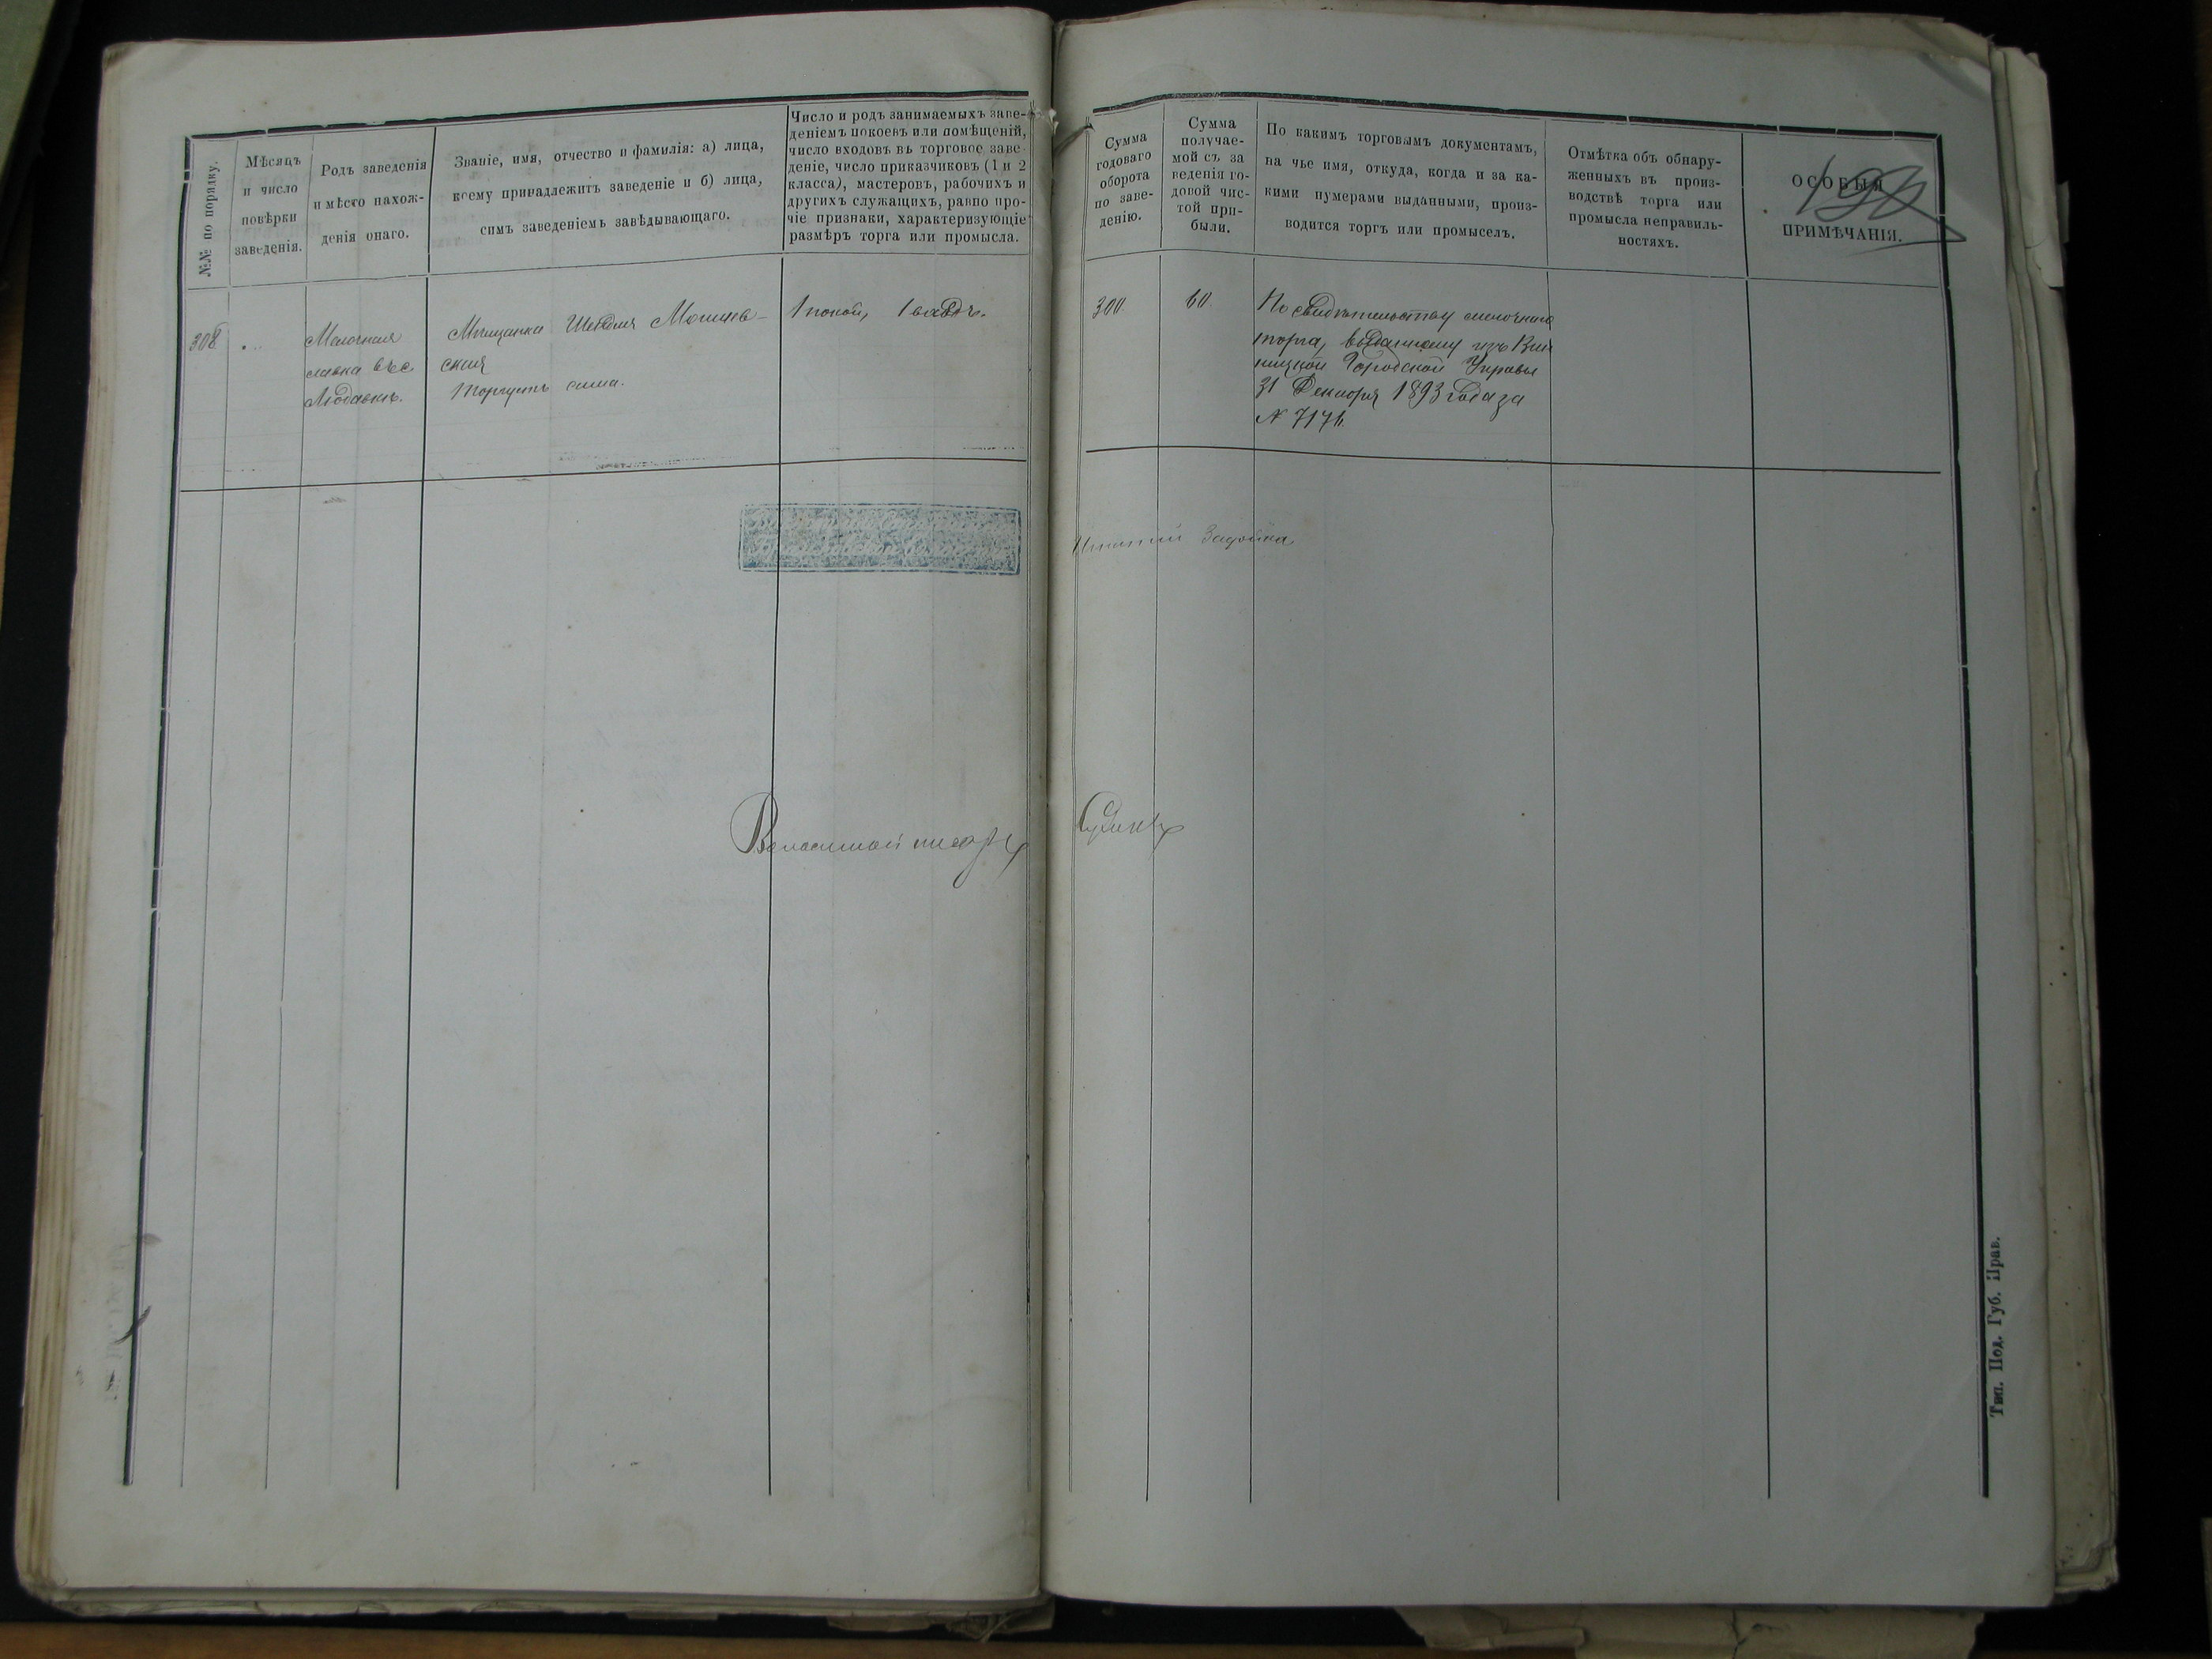 №№ по порядку.
Мѣсяцъ
и число
повѣрки
заведенія.
Родъ заведенія
и мѣсто нахож-
денія онаго.
Званіе, имя, отчество и фамилія: а) лица,
коему принадлежитъ заведеніе и б) лица,
симъ заведеніемъ завѣдывающаго.
Число и родъ занимаемыхъ заве-
деніемъ покоевъ или помѣщеній,
число входовъ въ торговое заве-
деніе, число приказчиковъ (1 и 2
класса), мастеровъ, рабочихъ и
другихъ служащихъ, равно про-
чіе признаки, характеризующіе
размѣръ торга или промысла.
Сумма
годоваго
оборота
по заве-
денію.
Сумма
получае-
мой съ за
веденія го-
довой чис-
той при-
были.
По какимъ торговымъ документамъ,
на чье имя, откуда, когда и за ка-
кими нумерами выданными, произ-
водится торгъ или промыселъ.
Отмѣтка объ обнару-
женныхъ въ произ-
водствѣ торга или
промысла неправиль-
ностяхъ.
ОСОБЫЯ
ПРИМѢЧАНІЯ.
308
Мелочная
лавка въ с
Мѣщанка Шейдля
ская
Торгуетъ сама.
1 покой, 1 входъ.
300.
60
По свидѣтельству мелочнаго
торга, выданному изъ Вин
ницкой Городской Управы
31 Декабря 1893 года за
№
Волостной писарь
Тип. Под. Губ. Прав.